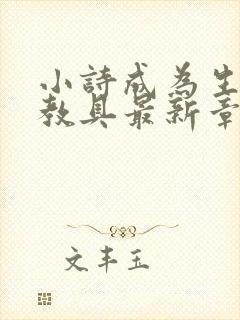 小詩成為生
教具最新章
文丰玉